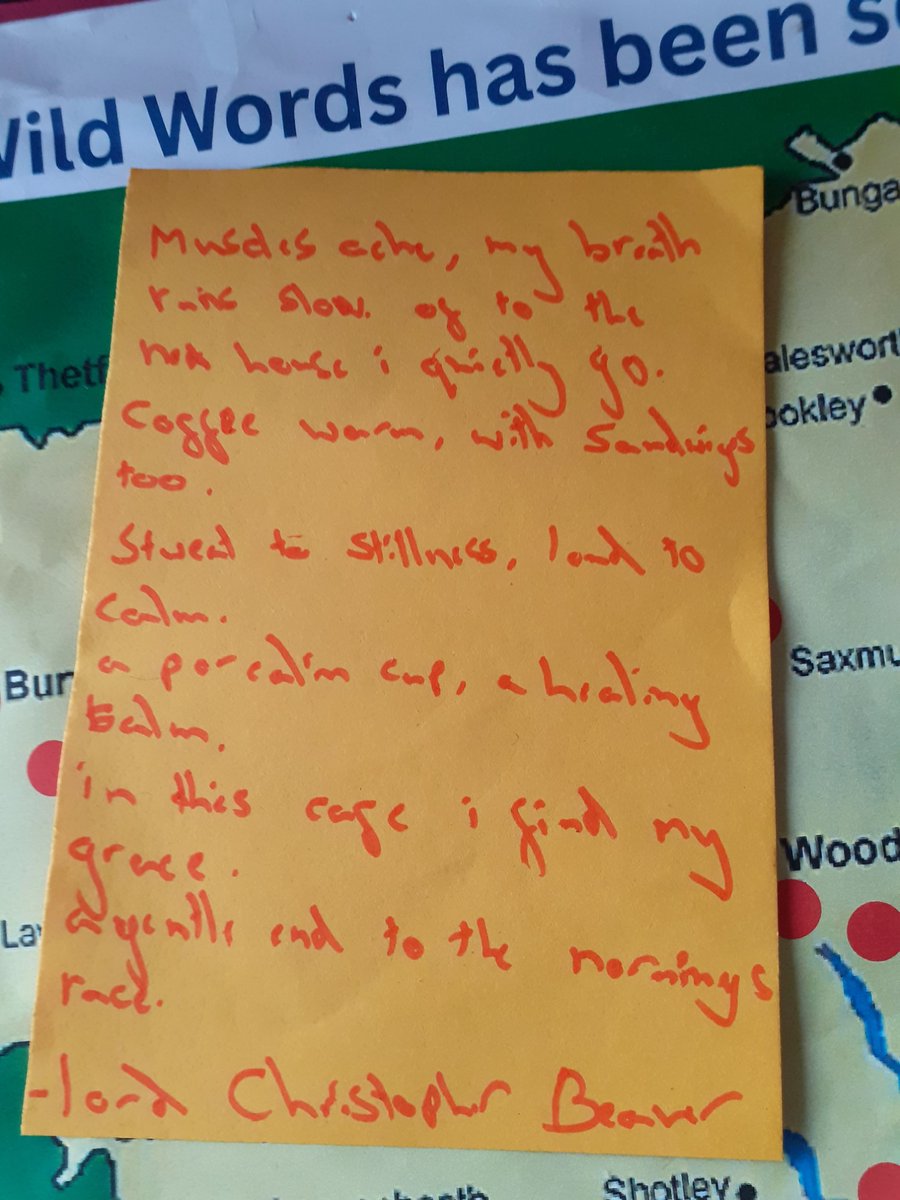 Wild Words has been s
Bunga
Thetf
alesworth
ookley
Muscles ache, my breath
runs slow. of to the
nex house i quietly go.
Coffee warm, with Sandwigs
too.
Stweat to stillness, loud to
calm.
a porcalin cup, a healing
balm.
in thies cafe i find my
grace.
a gentle end to the mornings
race.
-lord Christopher Beaver
Bur
Saxmu
Wood
La
Shotley